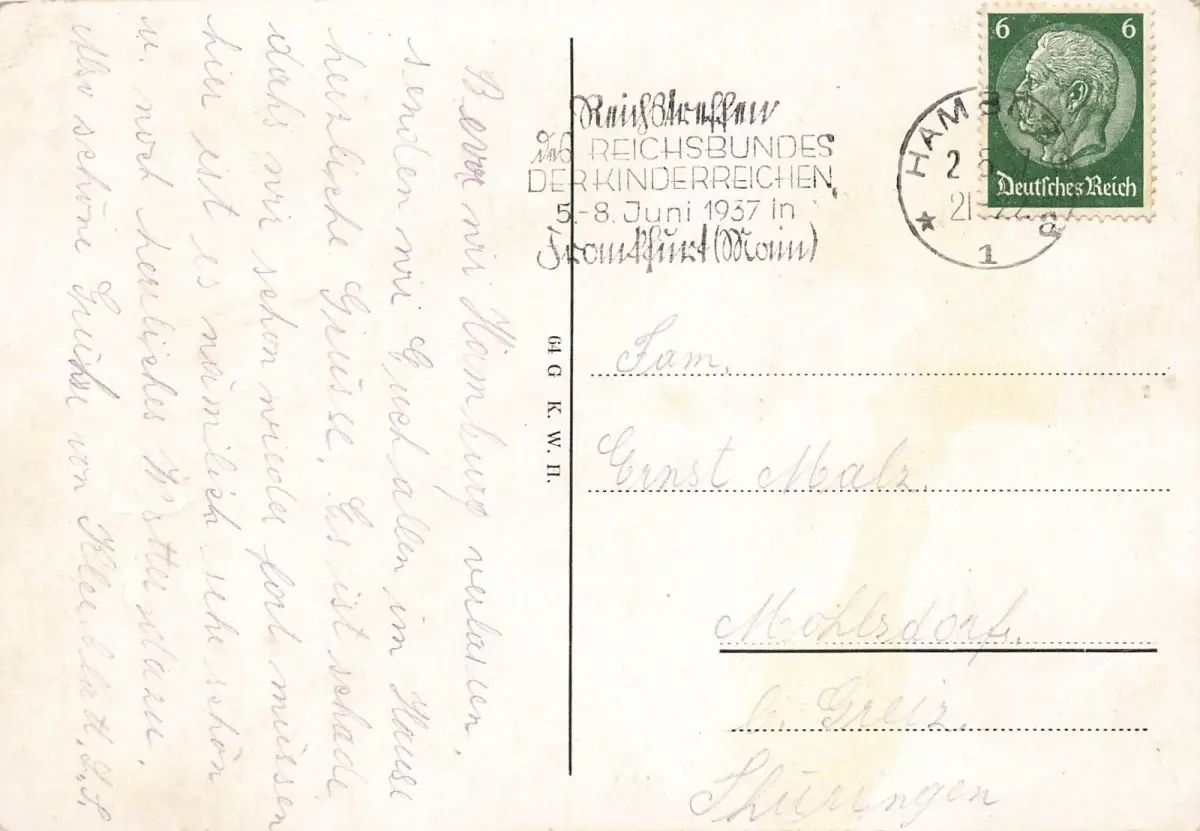 Bevor wir Hamburg verlassen,
senden wir Euch allen im Hause
herzliche Grüsse. Es ist schade
dahs wir schon wieder fort müssen
hier ist es nämlich sehr schön
u. noch herrliches Wetter dazu.
Also schöne Grühse von
Reichstreffen
des REICHSBUNDES
DER KINDERREICHEN
5.-8. Juni 1937 in
Frankfurt (Main)
HAMBURG
1
6 6
Deutsches Reich
64 G K. W. H.
Fam.
Ernst Malz.
Mohlsdorf.
b. Greiz.
Thüringen